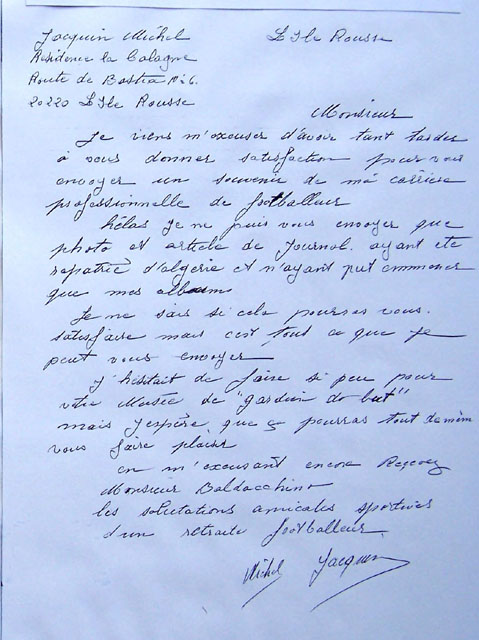 Jacquin Michel
L'Ile Rousse
Residence la Balagne
Route de Bastia N: 6.
20220 L'Ile Rousse
Monsieur
Je viens m'excuser d'avoir tant tarder
à vous donner satisfaction pour vous
envoyer un souvenir de ma carrière
professionnelle de footballeur
hélas je ne puis vous envoyer que
photo et article de journal. ayant ete
rapatrié d'algerie et n'ayant put emmener
que mes albums
Je ne sais si cela pourras vous.
satisfaire mais c'est tout ce que je
peut vous envoyer
J'hésitait de faire si peu pour
votre Musée de "gardien de but"
mais j'espère que ça pourras tout de mèm
vous faire plaisir
en m'excusant encore Recevez
Monsieur Baldacchino
les salutations amicales sportives
d'un retraité footballeur
Michel Jacquin